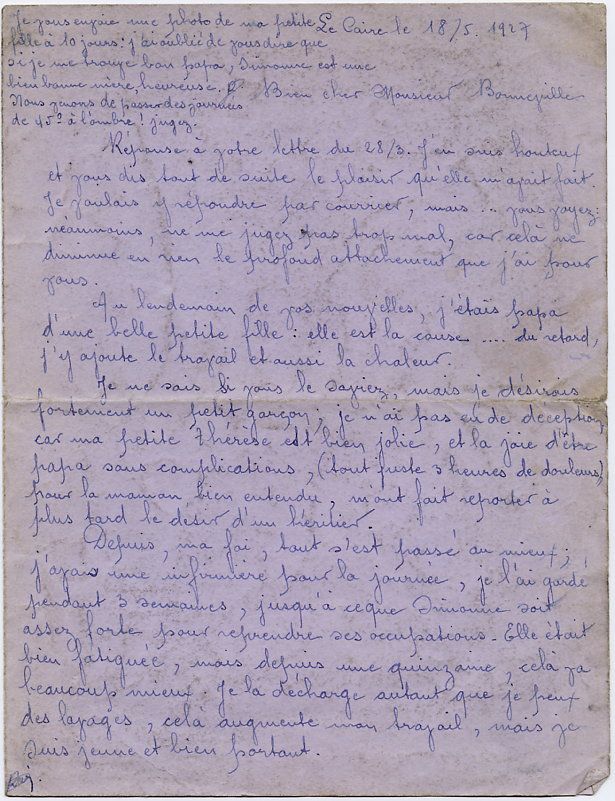 Je vous envoie une photo de ma petite
fille à 10 jours : j'ai oublié de vous dire que
si je me trouve bon papa, Simonne est une
bien bonne mère, heureuse.
Nous venons de passer des journées
de 45° à l'ombre ! jugez.
Le Caire le 18/5. 1927
Bien cher Monsieur Bonneville
Réponse à votre lettre du 28/3. J'en suis honteux
et vous dis tout de suite le plaisir qu'elle m'avait fait.
Je voulais y répondre par courrier, mais ... vous voyez :
néanmoins, ne me jugez pas trop mal, car celà ne
diminue en rien le profond attachement que j'ai pour
vous.
Au lendemain de vos nouvelles, j'étais papa
d'une belle petite fille : elle est la cause .... du retard,
j'y ajoute le travail et aussi la chaleur.
Je ne sais si vous le saviez, mais je désirais
fortement un petit garçon ; je n'ai pas eu de deception,
car ma petite Thérèse est bien jolie, et la joie d'être
papa sans complications, (tout juste 3 heures de douleurs)
pour la maman bien entendu, m'ont fait reporter à
plus tard le désir d'un héritier.
Depuis, ma foi, tout s'est passé au mieux ;
j'avais une infirmière pour la journée, je l'ai gardé
pendant 3 semaines, jusqu'à ce que Simonne soit
assez forte pour reprendre ses occupations - Elle était
bien fatiguée, mais depuis une quinzaine, celà va
beaucoup mieux. Je la décharge autant que je peux
des lavages, celà augmente mon travail, mais je
suis jeune et bien portant.